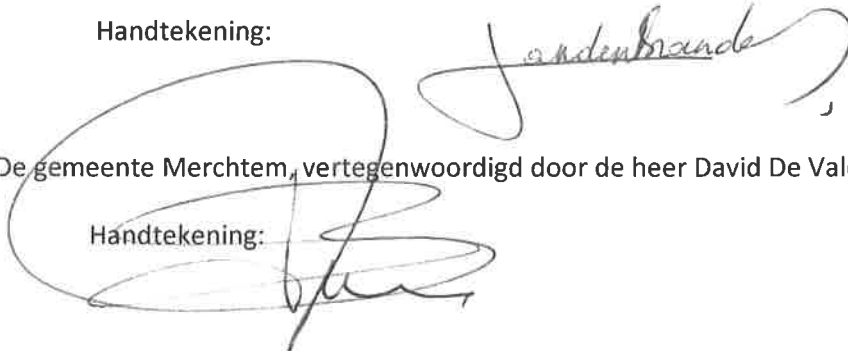 Handtekening:
De gemeente Merchtem, vertegenwoordigd door de heer David De Val
Handtekening: